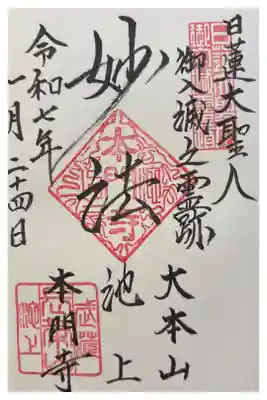 日蓮大聖人
御入滅之霊跡
大本山
池上
妙法
本門寺
令和七年
一月二十四日